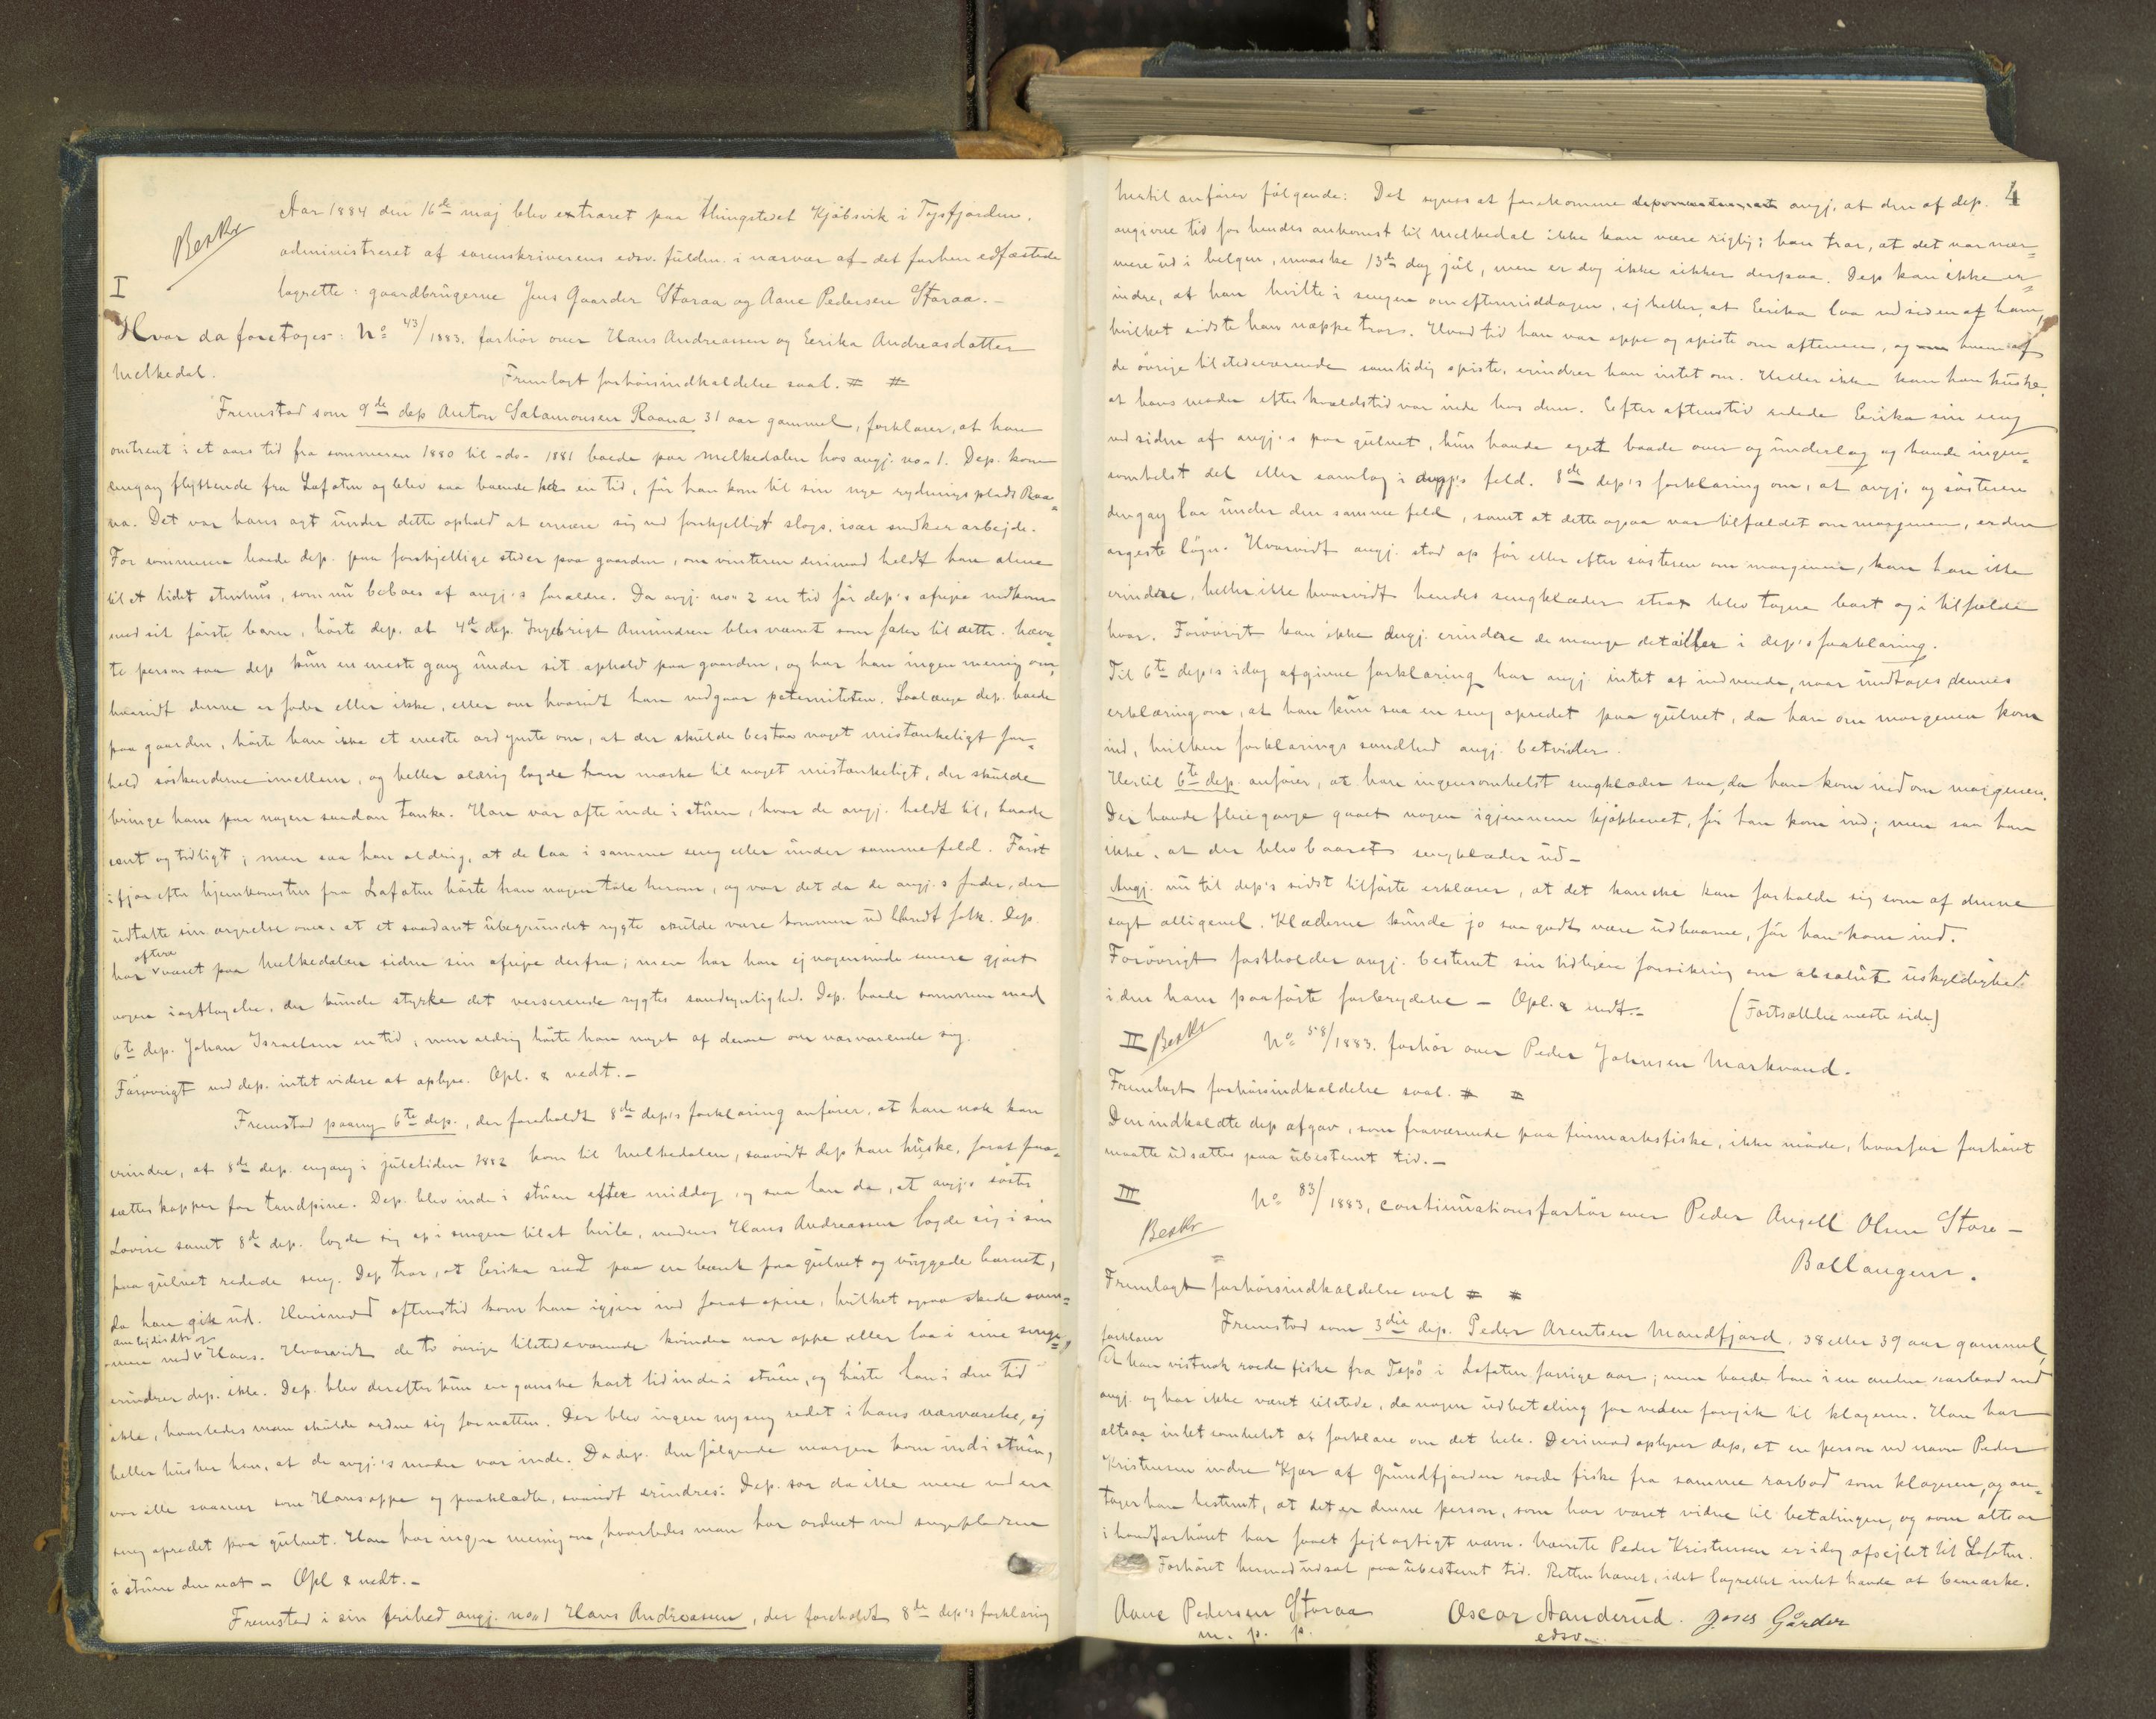 Aar 1884 den 16de maj blev extraret paa thingstedet Kjøbsvik i Tysfjorden.
Beskr
administreret af sorenskriverens edsv. fuldm. i nærvær af det forhen edfæstede
I
lagrette: gaardbrugerne Jens Gaarder Storaa og Aane Pedersen Storaa.-
Hvor da foretoges: No 43/1883. forhør over Hans Andreassen og Eerika Andreasdatter
Melkedal.
Fremlagt forhørsindkaldelse saal. # #
Fremstod som 9de dep Anton Salamonsen Raana 31 aar gammel, forklarer, at han
omtrent i et aars tid fra sommeren 1880 til -do- 1881 boede paa Melkedalen hos angj. no. 1. Dep. kom
engang flyttende fra Lofoten og blev saa boende her en tid, før han kom til sin nye rydningsplads Raa=
na. Det var hans agt under dette ophold at ernære sig ved forskjelligt slags, især snedkerarbejde.
For sommeren boede dep. paa forskjellige steder paa gaarden, om vinteren derimod holdt han alene
til et lidet stuehus, som nu beboes af angj.s forældre. Da angj. no. 2 en tid før dep's afrejse nedkom
med sit første barn, hørte dep. at 4de dep. Ingebrigt Amundsen blev nævnt som fader til dette. Nævn=
te person saa dep kun en eneste gang under sit ophold paa gaarden, og har han ingen mening om,
hvorvidt denne er fader eller ikke, eller om hvorvidt han vedgaar paterniteten. Saalænge dep. boede
paa gaarden, hørte han ikke et eneste ord ymte om, at der skulde bestaa noget mistænkeligt for=
hold søskenderne imellem, og heller aldrig lagde han mærke til noget mistænkeligt, der skulde
bringe ham paa nogen saadan tanke. Han var ofte inde i stuen, hvor de angj. holdt til, baade
sent og tidligt; men saa han aldrig, at de laa i samme seng eller under samme feld. Først
ifjor efter hjemkomsten fra Lofoten hørte han nogen tale herom, og var det da de angj.s fader, der
udtalte sin ærgrelse over, at et saadant ubegrundet rygte skulde være kommen ud blandt folk. Dep.
oftere
har været paa Melkedalen siden sin afrejse derfra; men har han ej nogensinde senere gjort
nogen iagttagelse, der kunde styrke det verserende rygtes sandsynlighed. Dep. boede sammen med
6te dep. Johan Israelsen en tid, men aldrig hørte han noget af denne om nærværende sag.
Forøvrigt ved dep. intet videre at oplyse. Opl. & vedt.-
Fremstod paany 6te dep., der foreholdt 8de dep's forklaring anfører, at han nok kan
erindre, at 8de dep. engang i juletiden 1882 kom til Melkedalen, saavidt dep kan huske, forat faa
sættes kopper for tandpine. Dep. blev inde i stuen efter middag, og saa han da, at angj's søster
Lovise samt 8de dep. lagde sig op i sengen til at hvile, medens Hans Andreassen lagde sig i sin
paa gulvet redede seng. Dep tror, at Eerika sad paa en bænk paa gulvet og vuggede barnet,
da han gik ud. Henimod aftenstid kom han igjen ind forat spise, hvilket ogsaa skede sam=
men med Hans. Hvorvidt de to øvrige tilstedeværende kvinder var oppe eller laa i sine senge,
erindrer dep. ikke. Dep. blev derefter kun en ganske kort tid inde i stuen, og hørte han i den tid
ikke, hvorledes man skulde ordne sig for natten. Der blev ingen ny seng redet i hans nærværelse, ej
heller husker han, at de angj.'s moder var inde. Da dep. den følgende morgen kom ind i stuen,
var ikke saanær som Hans oppe og paaklædte, saavidt erindres. Dep. saa da ikke mere end en
seng opredet paa gulvet. Han har ingen mening om, hvorledes man har ordnet med sengepladsen
i stuen den nat - Opl & vedt.-
Fremstod i sin frihed angj. no. 1 Hans Andreassen, der foreholdt 8de dep's forklaring
4
hertil anfører følgende: Det synes at forekomme angj. at den af dep.
angivne tid for hendes ankomst til Melkedal ikke kan være rigtig; han tror, at det var nær=
mere ud i helgen, maaske 13de dag jul, men er dog ikke sikker derpaa. Dep kan ikke er=
indre, at han hvilte i sengen om eftermiddagen, ej heller, at Eerika laa ved siden af ham,
hvilket sidste han næppe tror. Hvad tid han var oppe og spiste om aftenen, og hvem af
de øvrige tilstedeværende samtidig spiste, erindrer han intet om. Heller ikke kan han huske,
at hans moder efter kveldstid var inde hos dem. Efter aftenstid redede Eerika sin seng
ved siden af angj.s paa gulvet, hun havde eget baade over og underlag og havde ingen=
somhelst del eller samlag i angj's feld. 8de dep's forklaring om, at angj. og søsteren
dengang laa under den samme feld, samt at dette ogsaa var tilfældet om morgenen, er den
argeste løgn. Hvorvidt angj. stod op før eller efter søsteren om morgenen, kan han ikke
erindre, heller ikke hvorvidt hendes sengklæder strax blev tagne bort og i tilfælde
hvor. Forøvrigt kan ikke angj. erindre de mange detailler i dep's forklaring.
Til 6te dep's idag afgivne forklaring har angj. intet at indvende, naar undtages dennes
erklæring om, at han kun saa en seng opredet paa gulvet, da han om morgenen kom
ind, hvilken forklarings sandhed angj. betvivler.
Hertil 6te dep. anfører, at han ingensomhelst sengklæder saa, da han kom ind om morgenen.
Der havde flere gange gaaet nogen igjennem kjøkkenet, før han kom ind; men saa han
ikke, at der blev baaret sengklæder ud-
Angj. nu til dep's sidst tilførte erklærer, at det kanske kan forholde sig som af denne
sagt alligevel. Klæderne kunde jo saa godt være udbaarne, før han kom ind.
Forøvrigt fastholder angj. bestemt sin tidligere forsikring om absolut uskyldighed
i den ham paaførte forbrydelse - Opl. & vedt.- (Fortsættelse næste side)
II Beskr No 58/1883. forhør over Peder Johnsen Markvand.
Fremlagt forhørsindkaldelse saal. # #
Den indkaldte dep afgav, som fraværende paa finmarksfiske, ikke møde, hvorfor forhøret
maatte udsættes paa ubestemt tid.-
III No 83/1883, continuationsforhør over Peder Angell Olsen Store-
Beskr
Ballangen.
Fremlagt forhørsindkaldelse saal # #
Fremstod som 3die dep. Peder Arentsen Mandfjord, 38 eller 39 aar gammel,
forklarer
at han vistnok roede fiske fra Tepø i Lofoten forrige aar; men boede han i en anden rorbod end
angj. og har ikke været tilstede, da nogen udbetaling for veden foregik til klageren. Han har
altsaa intetsomhelst at forklare om det hele. Derimod oplyser dep, at en person ved navn Peder
Kristensen indre Kjær af Grundfjorden roede fiske fra samme rorbod som klageren, og an=
tager han bestemt, at det er denne person, som har været vidne til betalingen, og som altsaa
i havdforhøret har faaet fejlagtigt navn. Nævnte Peder Kristensen er idag afsejlet til Lofoten.
Forhøret hermed udsat paa ubestemt tid. Retten hævet, idet lagrettet intet havde at bemærke.
Aane Pedersen Storaa Oscar Aanderud. Jens Gårder
m. p. p. edsv.